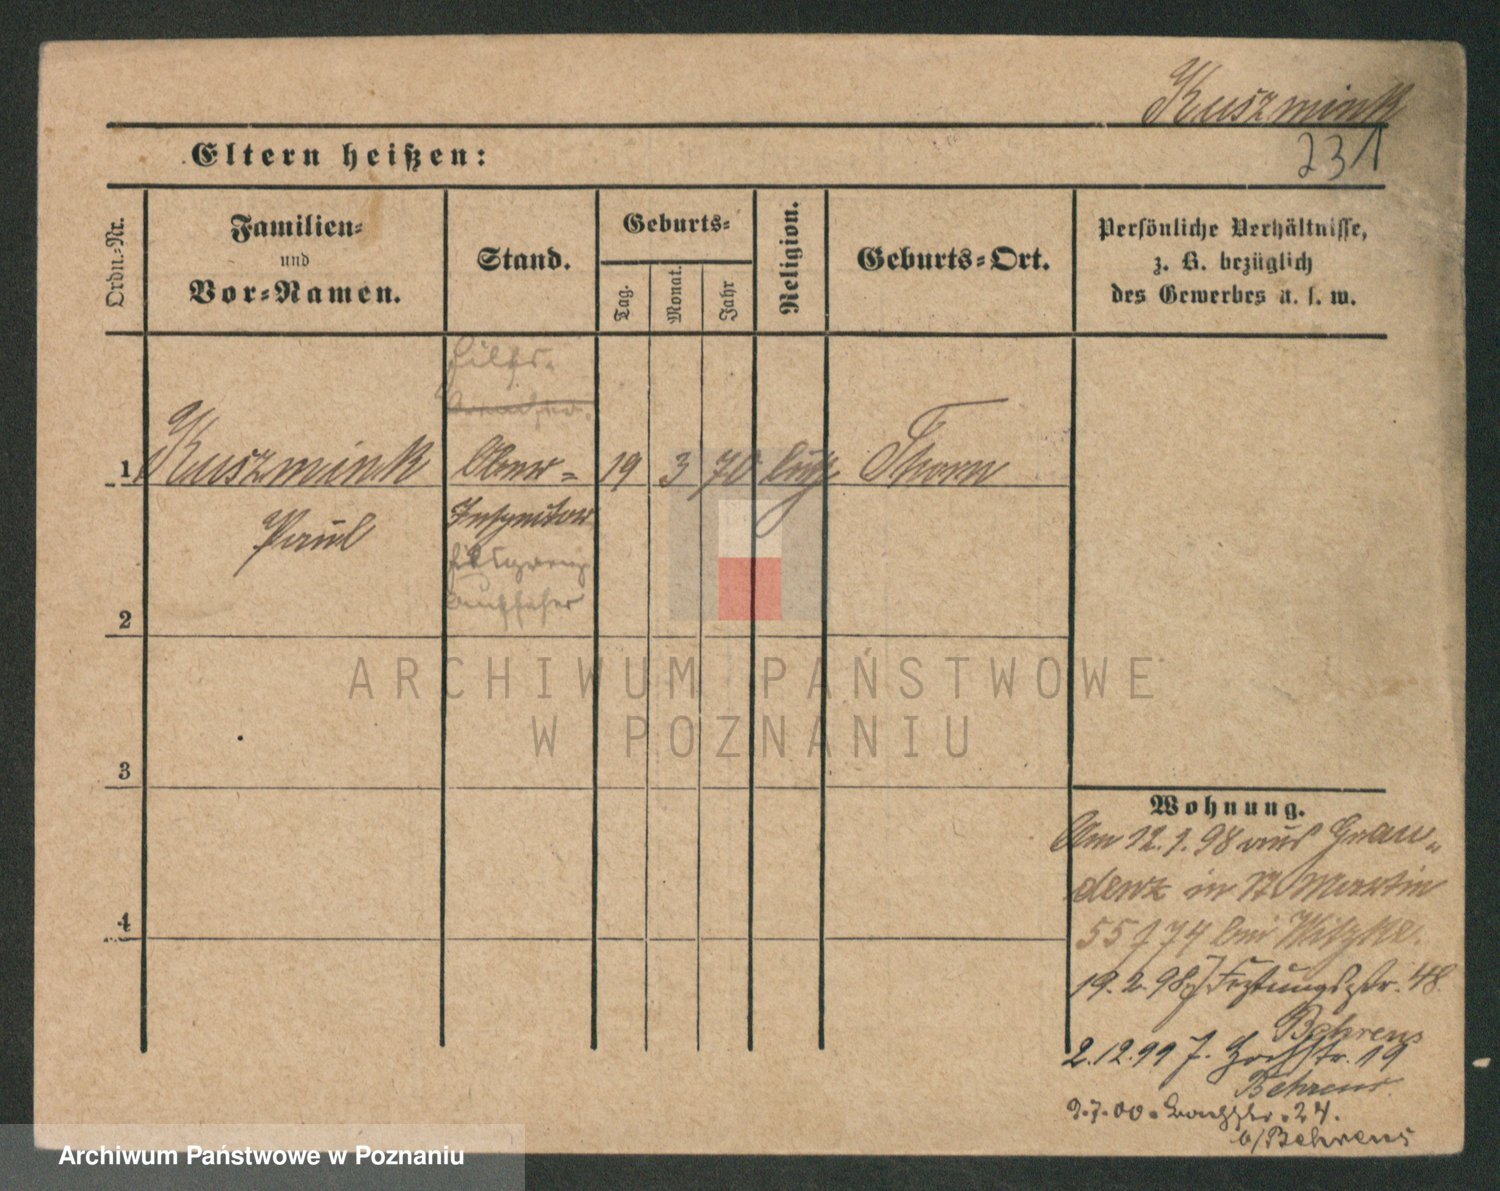 Kuszmink
231
Eltern heißen:
Ordn.-Nr.
Familien-
und
Vor-Namen.
Stand.
Geburts-
Tag.
Monat.
Jahr
Religion.
Geburts-Ort.
Persönliche Verhältnisse,
z. B. bezüglich
des Gewerbes u. s. w.
Hilfs-
1 Kuszmink Ober- 19 3 70 Thorn
Paul Inspektor
Aufseher
2
3
4
Wohnung.
Am 12.1.98 aus Grau-
denz in St Martin
55 / 74 bei Witzke.
19.2.98 Festungsstr. 48.
Behrens
2.12.99 Hochstr. 19
Behrens.
2.7.00. Bachstr. 24.
b/Behrens
ARCHIWUM PAŃSTWOWE
W POZNANIU
Archiwum Państwowe w Poznaniu